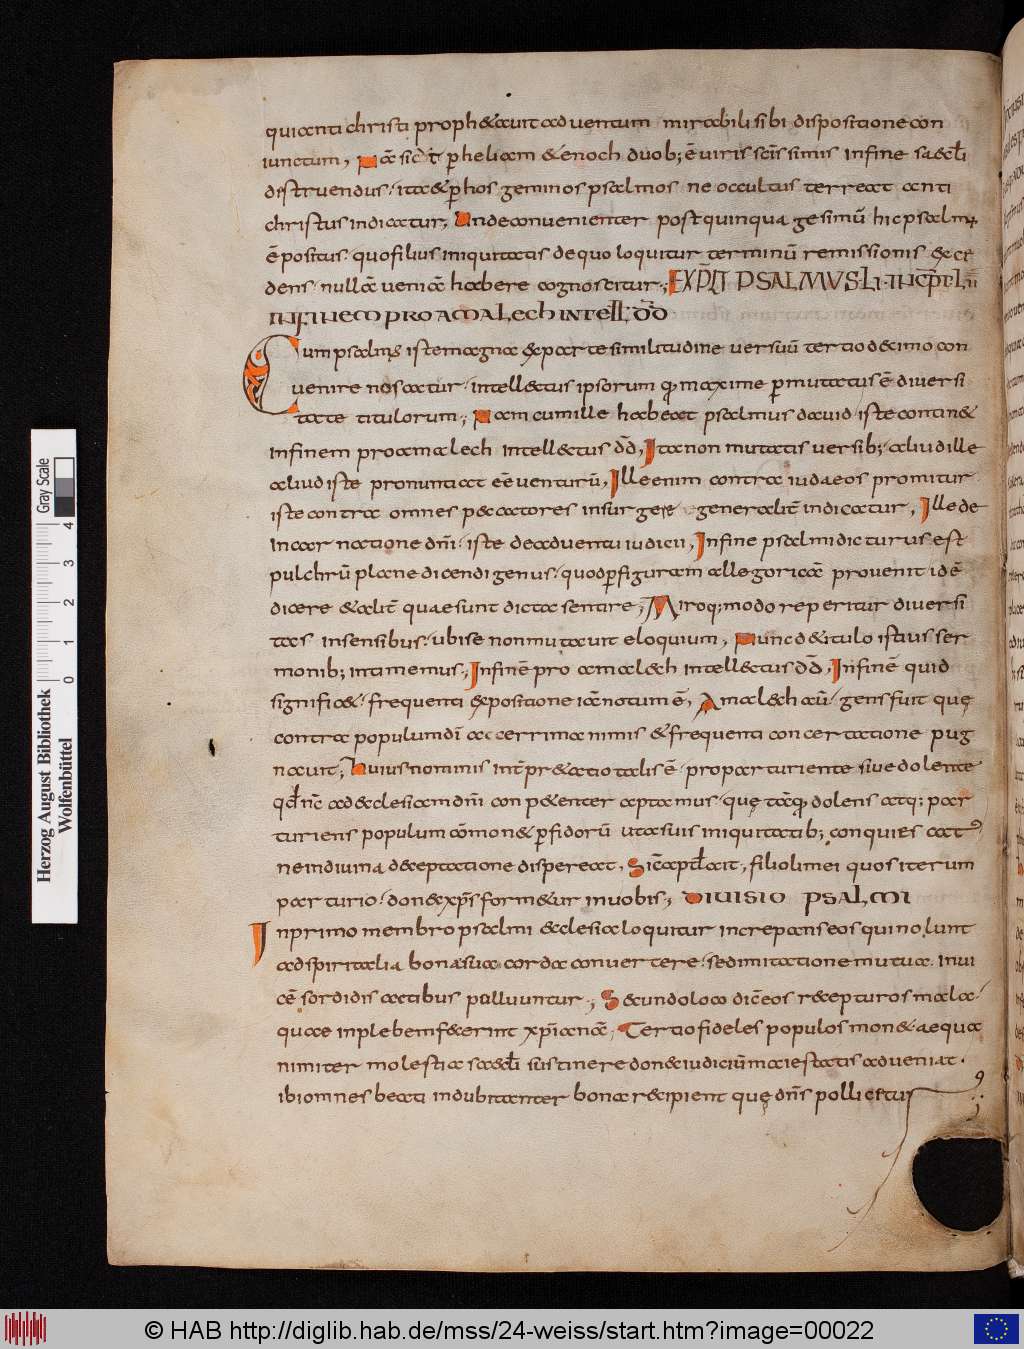 qui anti christi proph&auit aduentum mirabili sibi dispositione con
iunctum, Nā sic̄ p̄ heliam & enoch duob; ē uiris sc̄issimis infine saecl̄i
distruendus. ita & p̄ hos geminos psalmos ne occultus terreat anti
christus indicatur, Unde conuenienter post quinquagesimū hic psalmus
ē positus. quo filius iniquitatis de quo loquitur terminū remissionis exce
dens. nullā ueniā habere cognoscitur;
EXPLT PSALMUS LI. INCPT LII
IN FINEM PRO AMALECH INTELL D̄D
Cum psalmus iste magna ex parte similitudine uersuū tertio decimo con
uenire noscatur. intell&us ipsorum q̄ maxime p̄mutatus ē diuersi
tate titulorum; Nam cum ille habeat psalmus dauid iste contin&
infinem pro amalech intell&us d̄d, Ita non mutatis uersib; aliud ille
aliud iste pronuntiat eē uenturū, Ille enim contra iudaeos promitur
iste contra omnes peccatores insurgere generalit̄ indicatur, Ille de
incarnatione dn̄i. iste de aduentu iudicii, Infine psalmi dicturus est
pulchrū plane dicendi genus. quod p̄ figuram allegoricā prouenit idē
dicere & alit̄ quae sunt dicta sentire, Miroq; modo reperitur diuersi
tas insensibus. ubi se non mutauit eloquium, Nunc de titulo istius ser
monib; intamemus, Infinē pro amalech intell&us d̄d, Infinē quid
significet. frequenti expositione iā notum ē, Amalech aū. gens fuit quę
contra populum dī accerrima nimis & frequenti concertatione pug
nauit; Huius nominis int̄pr&atio talis ē. proparturiente siue dolente
qd̄ nc̄ ad ecclesiam dn̄i conpetenter aptamus. quę tāq̄ dolens atq; par
turiens populum cōmon& p̄fidorū ut a suis iniquitatib; conquiescat
ne in diuina deceptatione dispereat, Sic̄ ap̄l̄ ait, filioli mei quos iterum
parturio. donec xp̄s form&ur inuobis, DIUISIO PSALMI
In primo membro psalmi ecclesia loquitur increpans eos qui nolunt
ad spiritalia bona sua corda conuertere. sed imitatione mutua. inui
cē sordidis actibus polluuntur, Secundo loco dic̄ eos recepturos mala.
quae in plebem fecerint xp̄ianā, Tertio fideles populos mon& aequa
nimiter molestias saecl̄i sustinere donec iudiciū maiestatis adueniat.
ibi omnes beati indubitanter bona recipient quę dn̄s pollicetur
Herzog August Bibliothek
Wolfenbüttel
0 1 2 3 4
Gray Scale
© HAB http://diglib.hab.de/mss/24-weiss/start.htm?image=00022